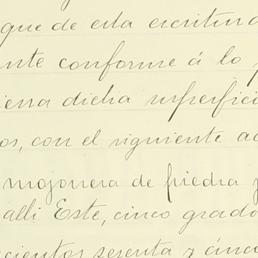 que de esta escritura
nte conforme á lo
dicha superfici
os, con el siguiente
mojonera de piedra y
alli Este, cinco grado
cientos sesenta y cinco